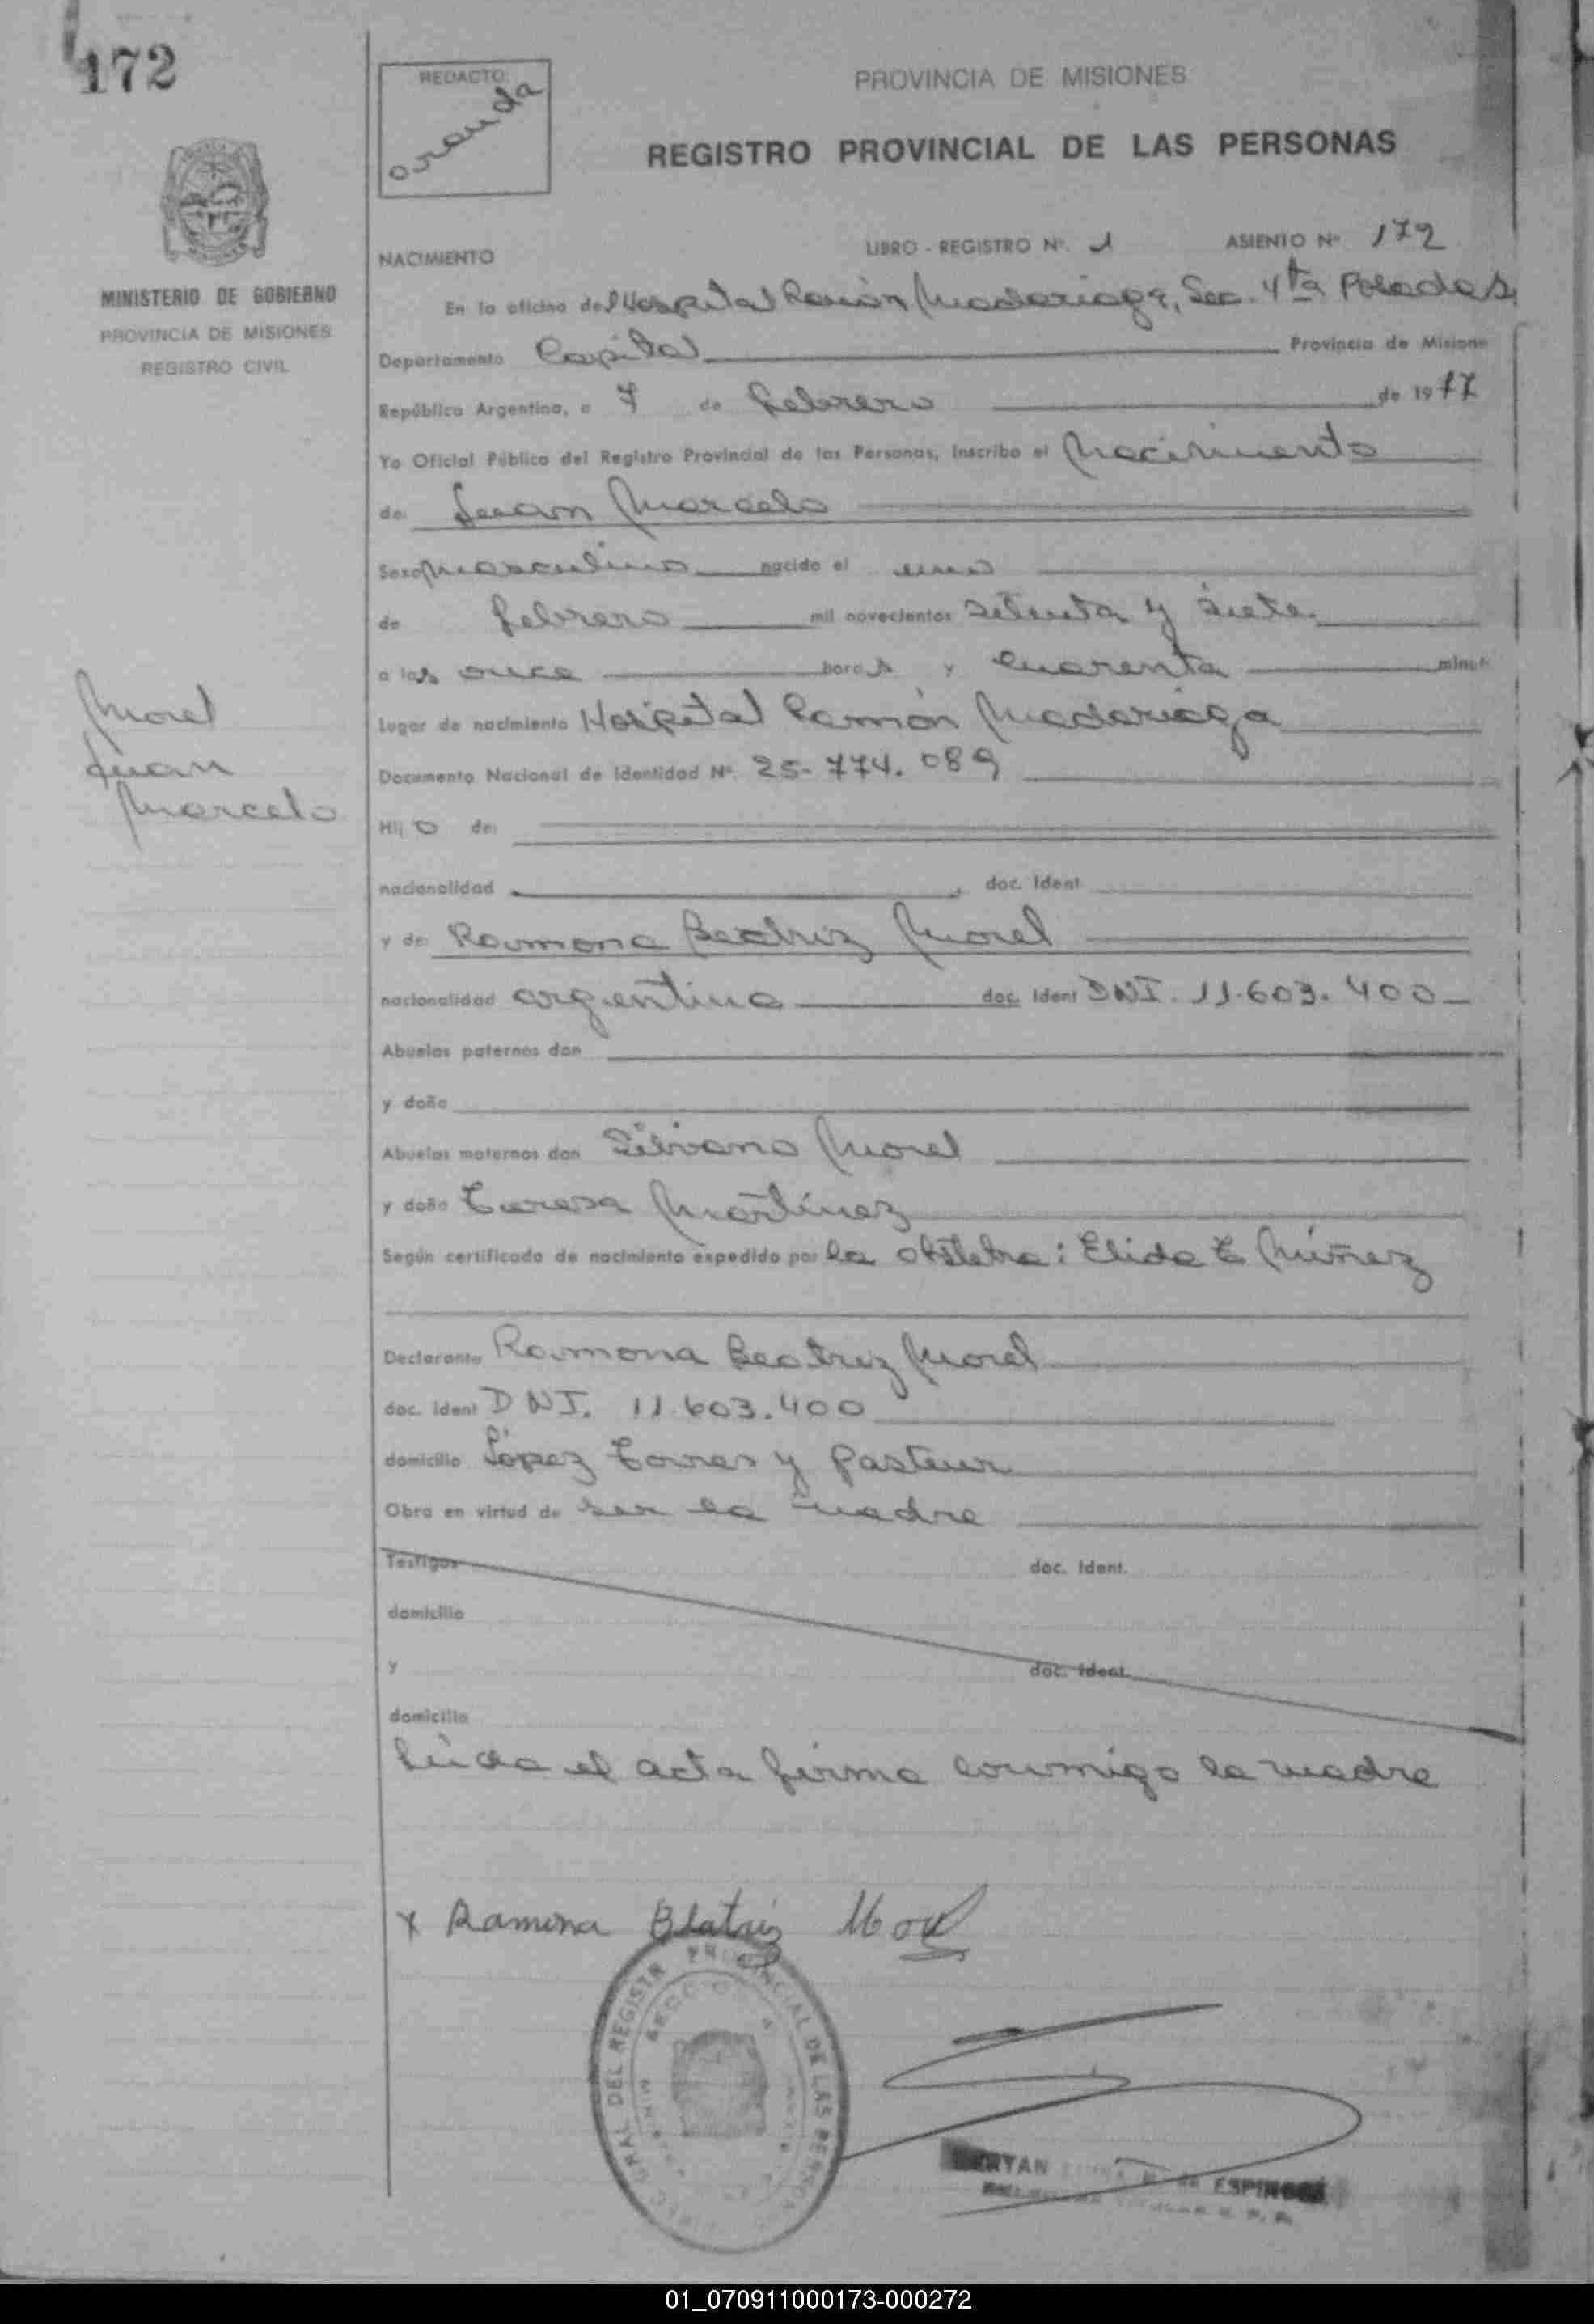 172
REDACTO:
aranda
PROVINCIA DE MISIONES
REGISTRO PROVINCIAL DE LAS PERSONAS
MINISTERIO DE GOBIERNO
PROVINCIA DE MISIONES
REGISTRO CIVIL
NACIMIENTO LIBRO - REGISTRO Nº. 1 ASIENTO Nº 172
En la oficina del Hospital Ramón Madariaga, Sec. 4ta Posadas
Departamento Capital Provincia de Misione
República Argentina, a 7 de febrero de 1977
Yo Oficial Público del Registro Provincial de las Personas, inscribo el Nacimiento
de: Juan Marcelo
Sexo masculino nacido el uno
de febrero mil novecientos setenta y siete
a las once horas y cuarenta minut
Morel
Juan
Marcelo
Lugar de nacimiento Hospital Ramón Madariaga
Documento Nacional de identidad Nº. 25.774.089
Hijo de:
nacionalidad , doc. Ident
y de: Ramona Beatriz Morel
nacionalidad argentina doc. Ident DNI. 11.603.400
Abuelos paternos don
y doña
Abuelos maternos don Silvano Morel
y doña Teresa Martínez
Según certificado de nacimiento expedido por la obstetra: Elida E Núñez
Declarante Ramona Beatriz Morel
doc. Ident DNI. 11.603.400
domicilio López Torres y Pasteur
Obra en virtud de ser la madre
Testigos doc. Ident.
domicilio
y doc. Ident.
domicilio
Leída el acta firma conmigo la madre
x Ramona Beatriz Morel
GRAL DEL REGISTR PROVINCIAL DE LAS PERSONAS
ESPINOSA
01_070911000173-000272